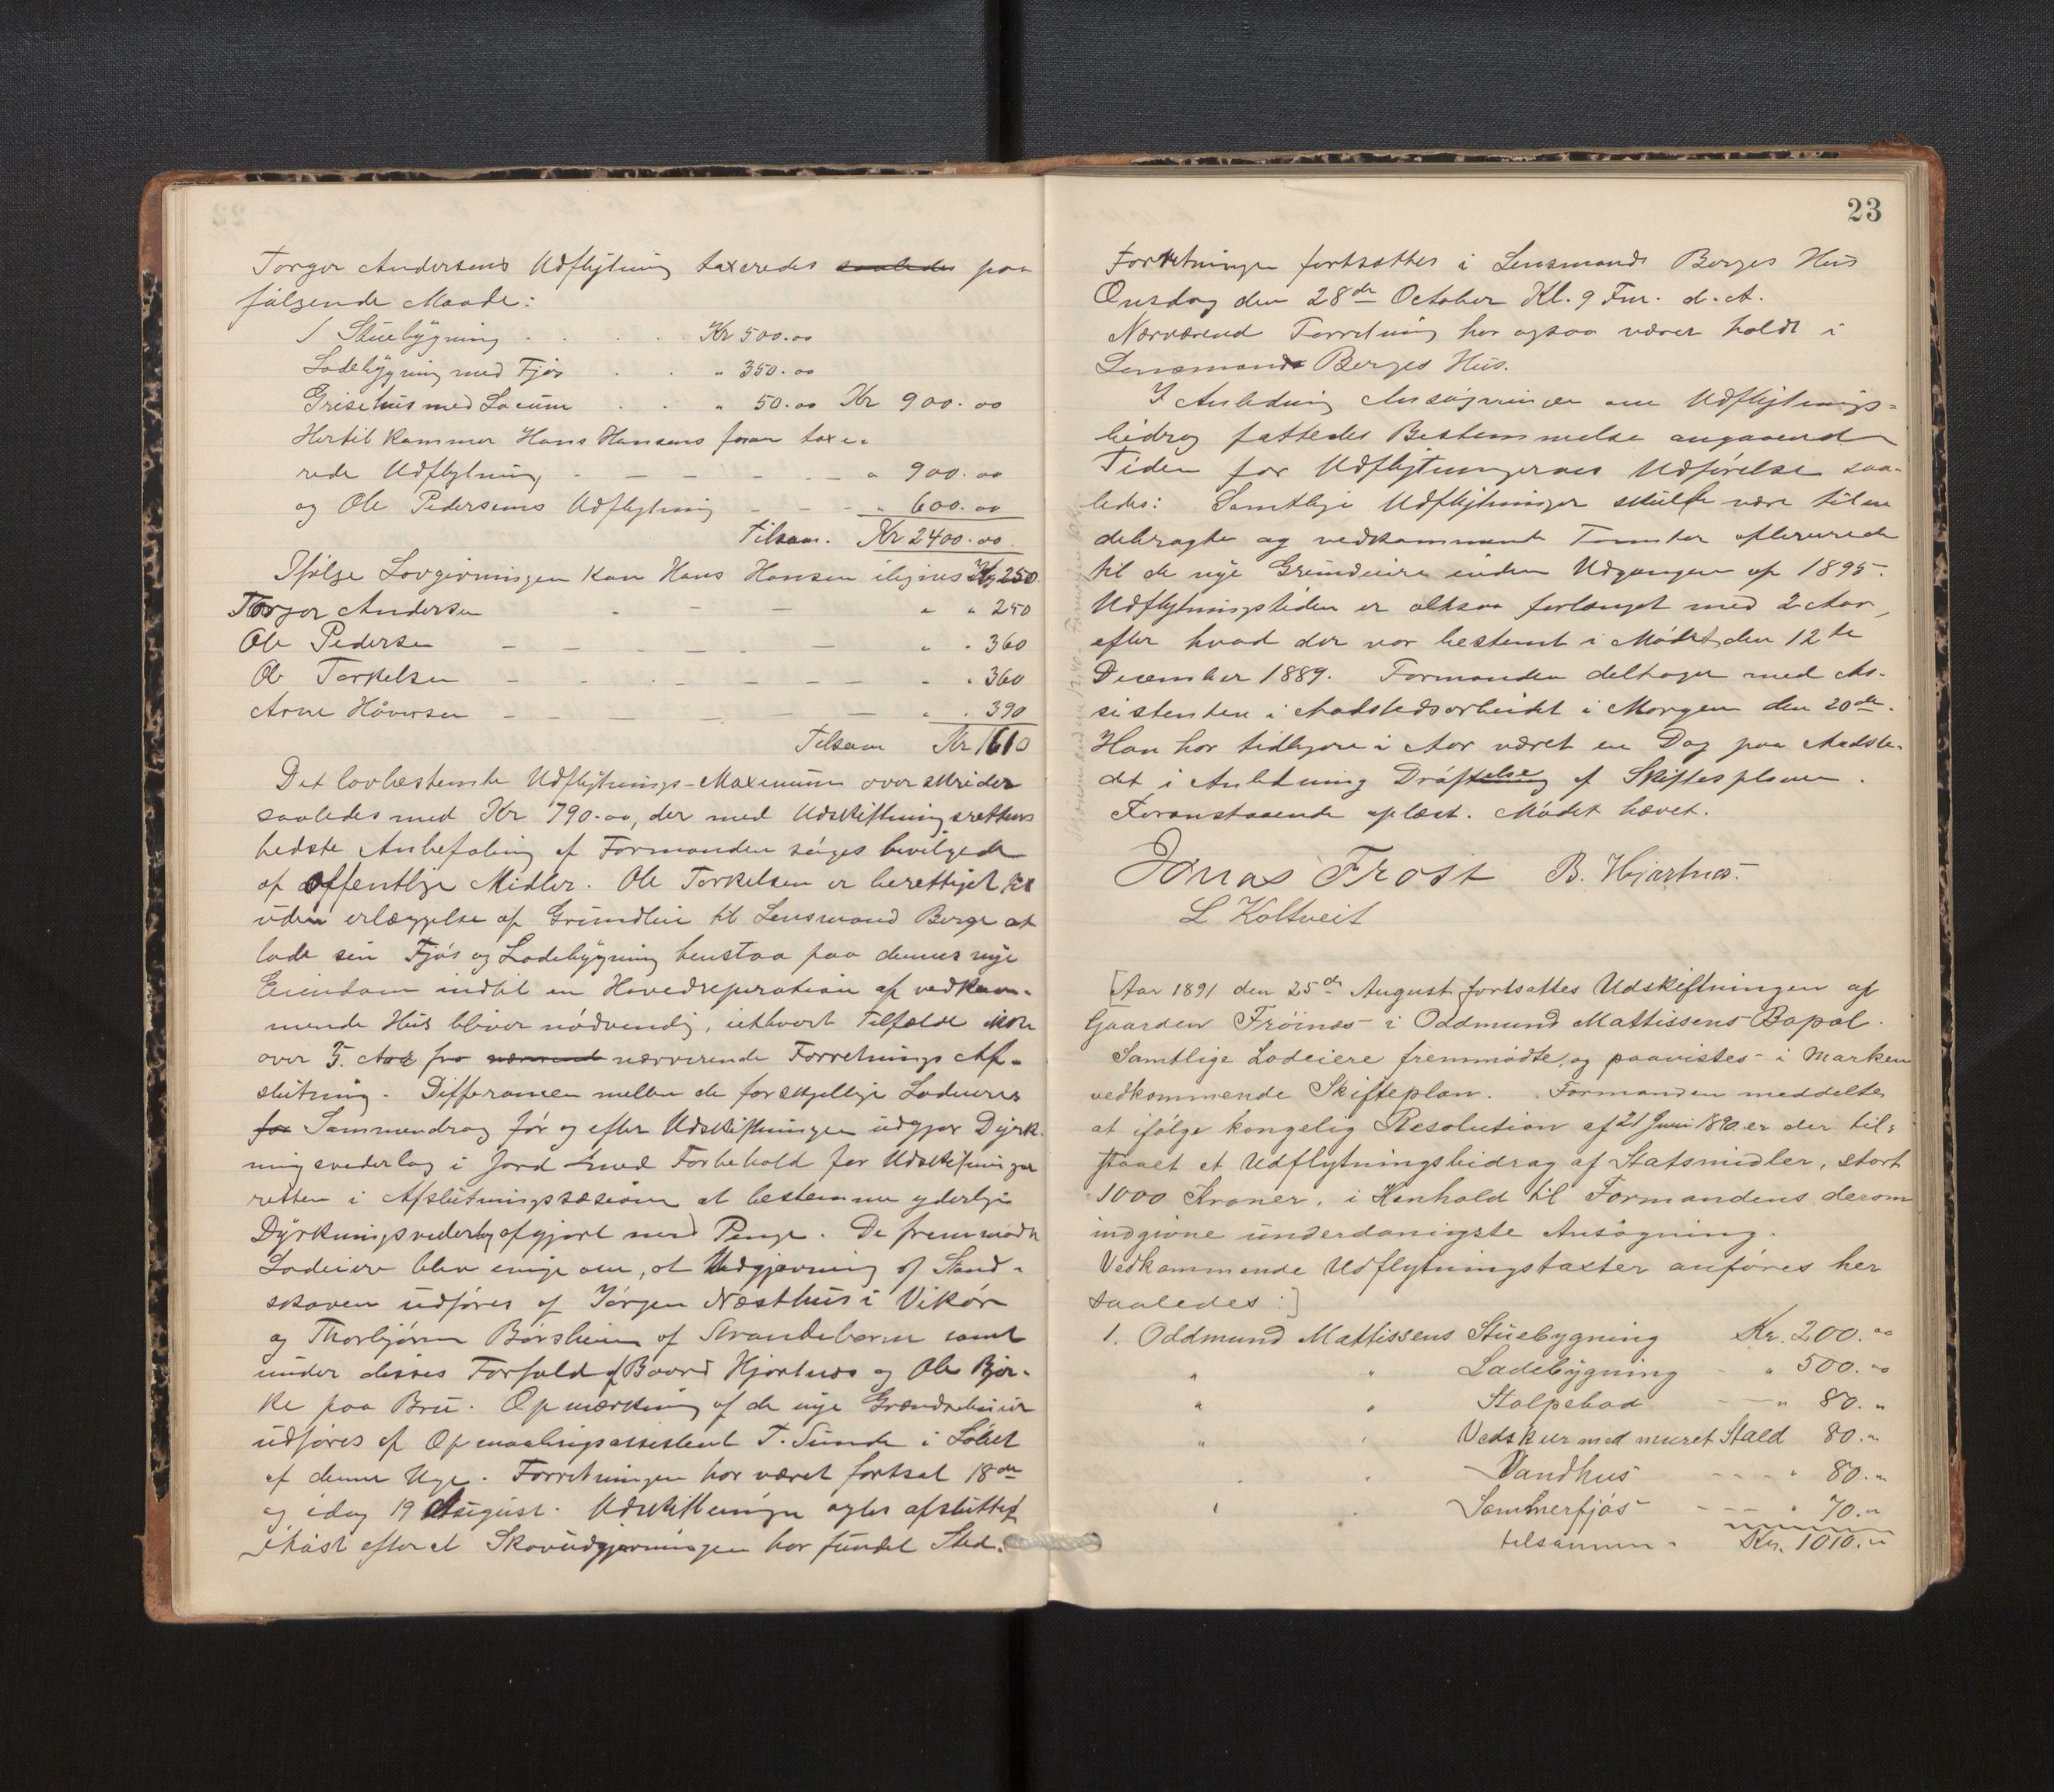 Torger Andersens Udflytning taxeredes saaledes paa
følgende Maade:
1 Stuebygning . . . . Kr 500.00
Ladebygning med Fjøs . . " 350.00
Grisehus med Locum . . " 50.00 Kr 900.00
Hertil kommer Hans Hansens foran taxe=
rede Udflytning - - - - - - " 900.00
og Ole Pedersens Udflytning - - - " 600.00
Tilsam. Kr 2400.00
Ifølge Lovgivningen kan Hans Hansen ilignes Kr 250
Torger Andersen - - - " " 250
Ole Pedersen - - - - - - " " 360
Ole Torkelsen - - - - - - - " " 360
Arne Håversen - - - - - " " 390
Tilsam Kr 1610
Det lovbestemte Udflytnings-Maximum overskrider
saaledes med Kr 790.00, der med Udskiftningsrettens
bedste Anbefaling af Formanden søges bevilgede
af offentlige Midler. Ole Torkelsen er berettiget til
uden erlæggelse af Grundleie til Lensmand Berge at
lade sin Fjøs og Ladebygning henstaa paa dennes nye
Eiendom indtil en Hovedreperation af vedkom-
mende Hus bliver nødvendig, iethvert Tilfælde ikke
over 5. Aar fra nærværende nærverende Forretnings Af-
slutning. Differancen mellem de forskjellige Lodeieres
for Sammendrag før og efter Udskiftningen udgjør Dyrk-
ningsvederlag i Jord med Forbehold for Udskiftnings
retten i Afslutningssessionen at bestemme yderlige
Dyrkningsvederlag afgjort med Penge. De fremmødte
Lodeiere blev enige om, at Udgjævning af Stand-
skoven udføres af Jørgen Næsthus i Vikør
og Thorbjørn Børsheim af Strandebarm samt
under disses Forfald af Baard Hjartnæs og Ole Bjer-
ke paa Bru. Opmærkning af de nye Grændselinier
udføres af Opmaalingsassistent T. Sunde i Løbet
af denne Uge. Forretningen har været fortsat 18de
og idag 19 August. Udskiftningen agtes afsluttet
ihøst efter at Skovudgjævningen har fundet Sted.
23
Forretningen fortsættes i Lensmands Berges Hus
Onsdag den 28de October Kl. 9 Fm. d. A.
Nærværend Forretning har ogsaa været holdt i
Lensmands Berges Hus.
I Anledning Ansøgningen om Udflytnings-
bidrag fattedes Bestemmelse angaaende
Tiden for Udflytningernes Udførelse saa-
ledes: Samtlige Udflytninger skulle være tilen
debragte og vedkommende Tomter afleverede
til de nye Grundeiere inden Udgangen af 1895.
Udflytningstiden er altsaa forlænget med 2 Aar,
efter hvad der var bestemt i Mødet den 12te
December 1889. Formanden deltager med As-
sistenten i Aastedsarbeidet i Morgen den 20de.
Han har tidligere i Aar været en Dag paa Aaste-
det i Anledning Drøftelse af Skifteplanen.
Foranstaaende oplæst. Mødet hævet.
Jonas Frost B. Hjartnæs.
L Koltveit
[Aar 1891 den 25de August fortsattes Udskiftningen af
Gaarden Frøinæs i Oddmund Mattissens Bopæl.
Samtlige Lodeiere fremmødte, og paavistes i Marken
vedkommende Skifteplan. Formanden meddelte,
at ifølge kongelig Resolution af 21 Juni 1890 er der til=
staaet et Udflytningsbidrag af Statsmidler, stort
1000 Kroner, i Henhold til Formandens derom
indgivne underdanigste Ansøgning.
Vedkommende Udflytningstaxter anføres her
saaledes:]
1. Oddmund Mattissens Stuebygning Kr. 200.00
" " Ladebygning - " 500.00
" " Stolpebod - " 80."
" " Vedskur med muret Stald 80."
" " Vandhus - - - " 80."
" " Sommerfjøs - - - " 70."
tilsammen. Kr. 1010."